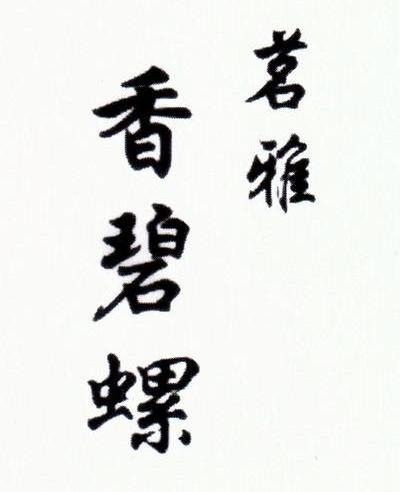 茗雅
香碧螺